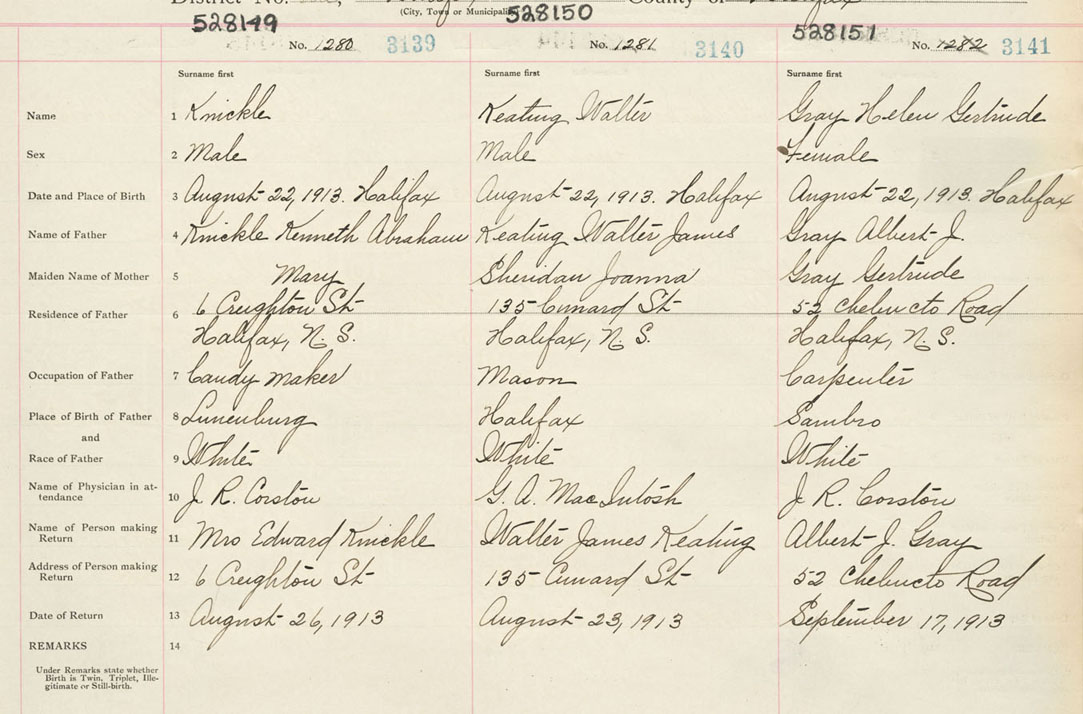 District No. County of Halifax
(City, Town or Municipality)
528149 528150 528151
No. 1280 3139 No. 1281 3140 No. 1282 3141
Surname first Surname first Surname first
Name 1 Knickle Keating Walter Gray Helen Gertrude
Sex 2 Male Male Female
Date and Place of Birth 3 August 22, 1913. Halifax August 22, 1913. Halifax August 22, 1913. Halifax
Name of Father 4 Knickle Kenneth Abraham Keating Walter James Gray Albert J.
Maiden Name of Mother 5 Mary Sheridan Joanna Gray Gertrude
Residence of Father 6 6 Creighton St 135 Cunard St 52 Chebucto Road
Halifax, N. S. Halifax, N. S. Halifax, N. S.
Occupation of Father 7 Candy Maker Mason Carpenter
Place of Birth of Father 8 Lunenburg Halifax Sambro
and
Race of Father 9 White White White
Name of Physician in at-
tendance 10 J. R. Corston G. A. MacIntosh J R. Corston
Name of Person making
Return 11 Mrs Edward Knickle Walter James Keating Albert J. Gray
Address of Person making
Return 12 6 Creighton St 135 Cunard St 52 Chebucto Road
Date of Return 13 August 26, 1913 August 23, 1913 September 17, 1913
REMARKS 14
Under Remarks state whether
Birth is Twin, Triplet, Ille-
gitimate or Still-birth.